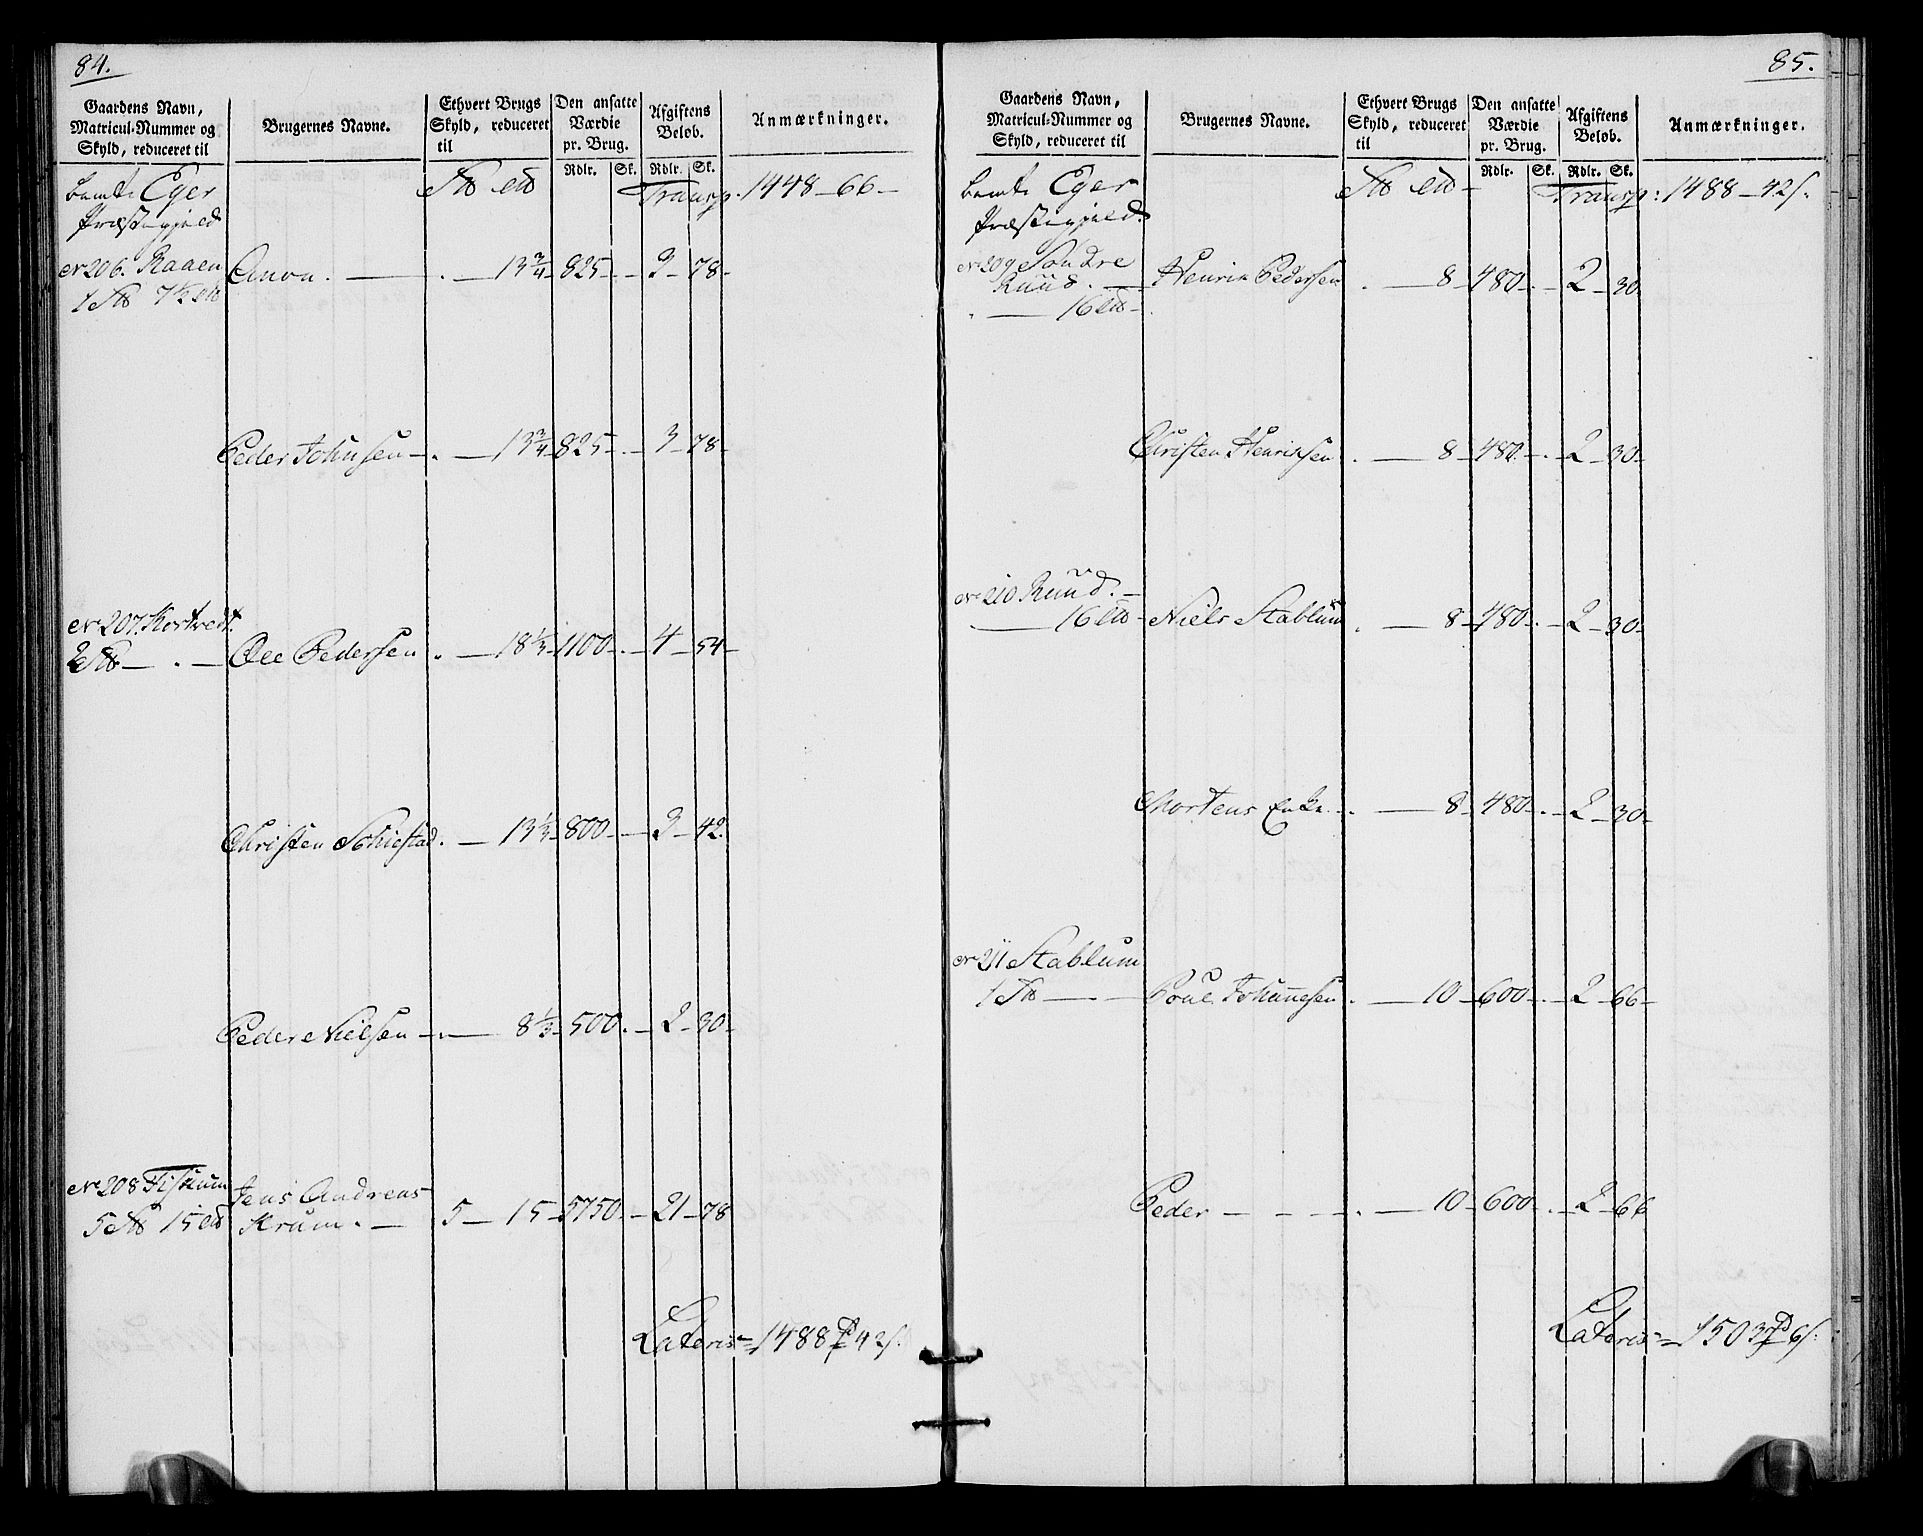 84.
Gaardens Navn, Matricul-Nummer og Skyld, reduceret til
Brugernes Navne.
Ethvert Brugs Skyld, reduceret til
Den ansatte Værdie pr. Brug.
Rdlr. Sk.
Afgiftens Beløb.
Rdlr. Sk.
Anmærkninger.
Eger
Præstegjeld
Transp. 1448 - 66 -
No 206. Raaen Amon. - 13 3/4 - 825 - 3 - 78 -
Peder Johnsen - 13 3/4 - 825 - 3 - 78 -
No 207. Kortvedt.
Ole Pedersen - 18 1/3 - 1100 - 4 - 54 -
Christen - 13 1/3 - 800 - 3 - 42.
Peder Nielsen - 8 1/3 - 500 - 2 - 30 -
No 208 Fiskum Jens Andreas
Krum. - 5 - 15 - 5750 - 21 - 78
Lateris = 1488 42 s.
85.
Gaardens Navn, Matricul-Nummer og Skyld, reduceret til
Brugernes Navne.
Ethvert Brugs Skyld, reduceret til
Den ansatte Værdie pr. Brug.
Rdlr. Sk.
Afgiftens Beløb.
Rdlr. Sk.
Anmærkninger.
Eger
Præstegjeld.
Transp: 1488 - 42 s.
No 209 Søndre
Ruud. - Henrik Pedersen - 8 - 480 - 2 - 30
16
Christen Henrichsen - 8 - 480 - 2 - 30 -
No 210 Ruud. -
16 Niels Stablum - 8 - 480 - 2 - 30 -
Mortens Enke - 8 - 480 - 2 - 30 -
No 211 Stablum
Poul Johannesen - 10 - 600 - 2 - 66 -
Peder - - - - 10 - 600 - 2 - 66
Lateris = 1503 6 s.